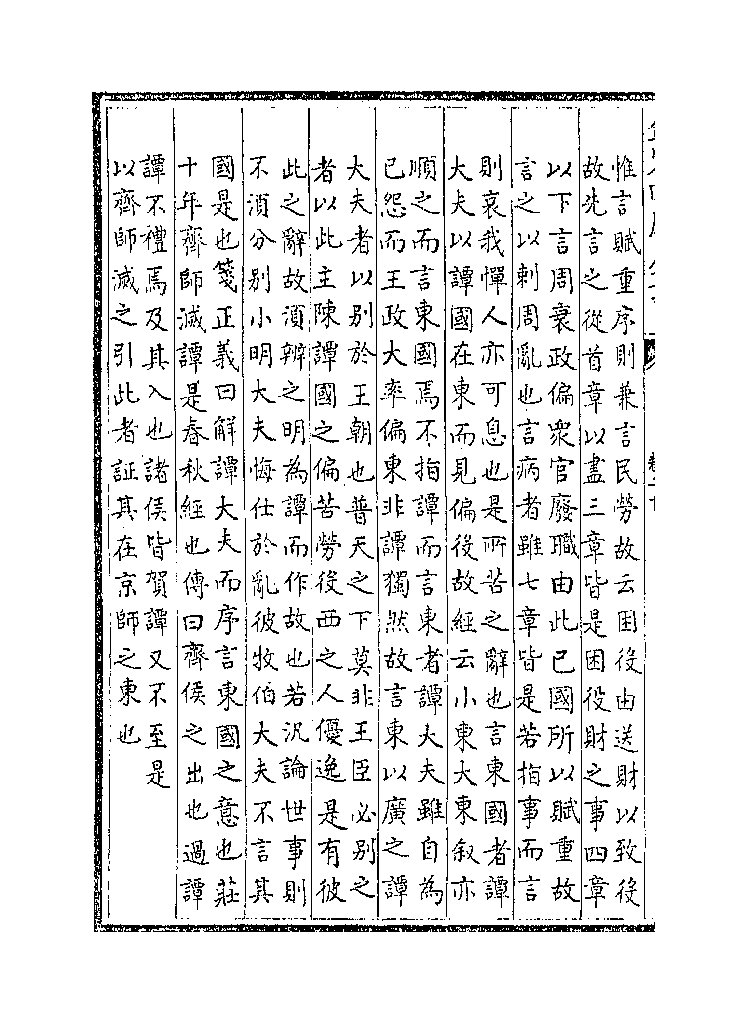 惟言賦重序則兼言民勞故云困役由送財以致役
故先言之從首章以盡三章皆是困役財之事四章
以下言周衰政偏衆官廢職由此已國所以賦重故
言之以刺周亂也言病者雖七章皆是若指事而言
則哀我憚人亦可息也是所苦之辭也言東國者譚
大夫以譚國在東而見偏役故經云小東大東叙亦
順之而言東國焉不指譚而言東者譚大夫雖自為
已怨而王政大率偏東非譚獨然故言東以廣之譚
大夫者以别於王朝也普天之下莫非王臣必别之
者以此主陳譚國之偏苦勞役西之人優逸是有彼
此之辭故須辨之明為譚而作故也若汎論世事則
不須分别小明大夫悔仕於亂彼牧伯大夫不言其
國是也箋正義曰解譚大夫而序言東國之意也莊
十年齊師滅譚是春秋經也傳曰齊侯之出也過譚
譚不禮焉及其入也諸侯皆賀譚又不至是
以齊師滅之引此者証其在京師之東也